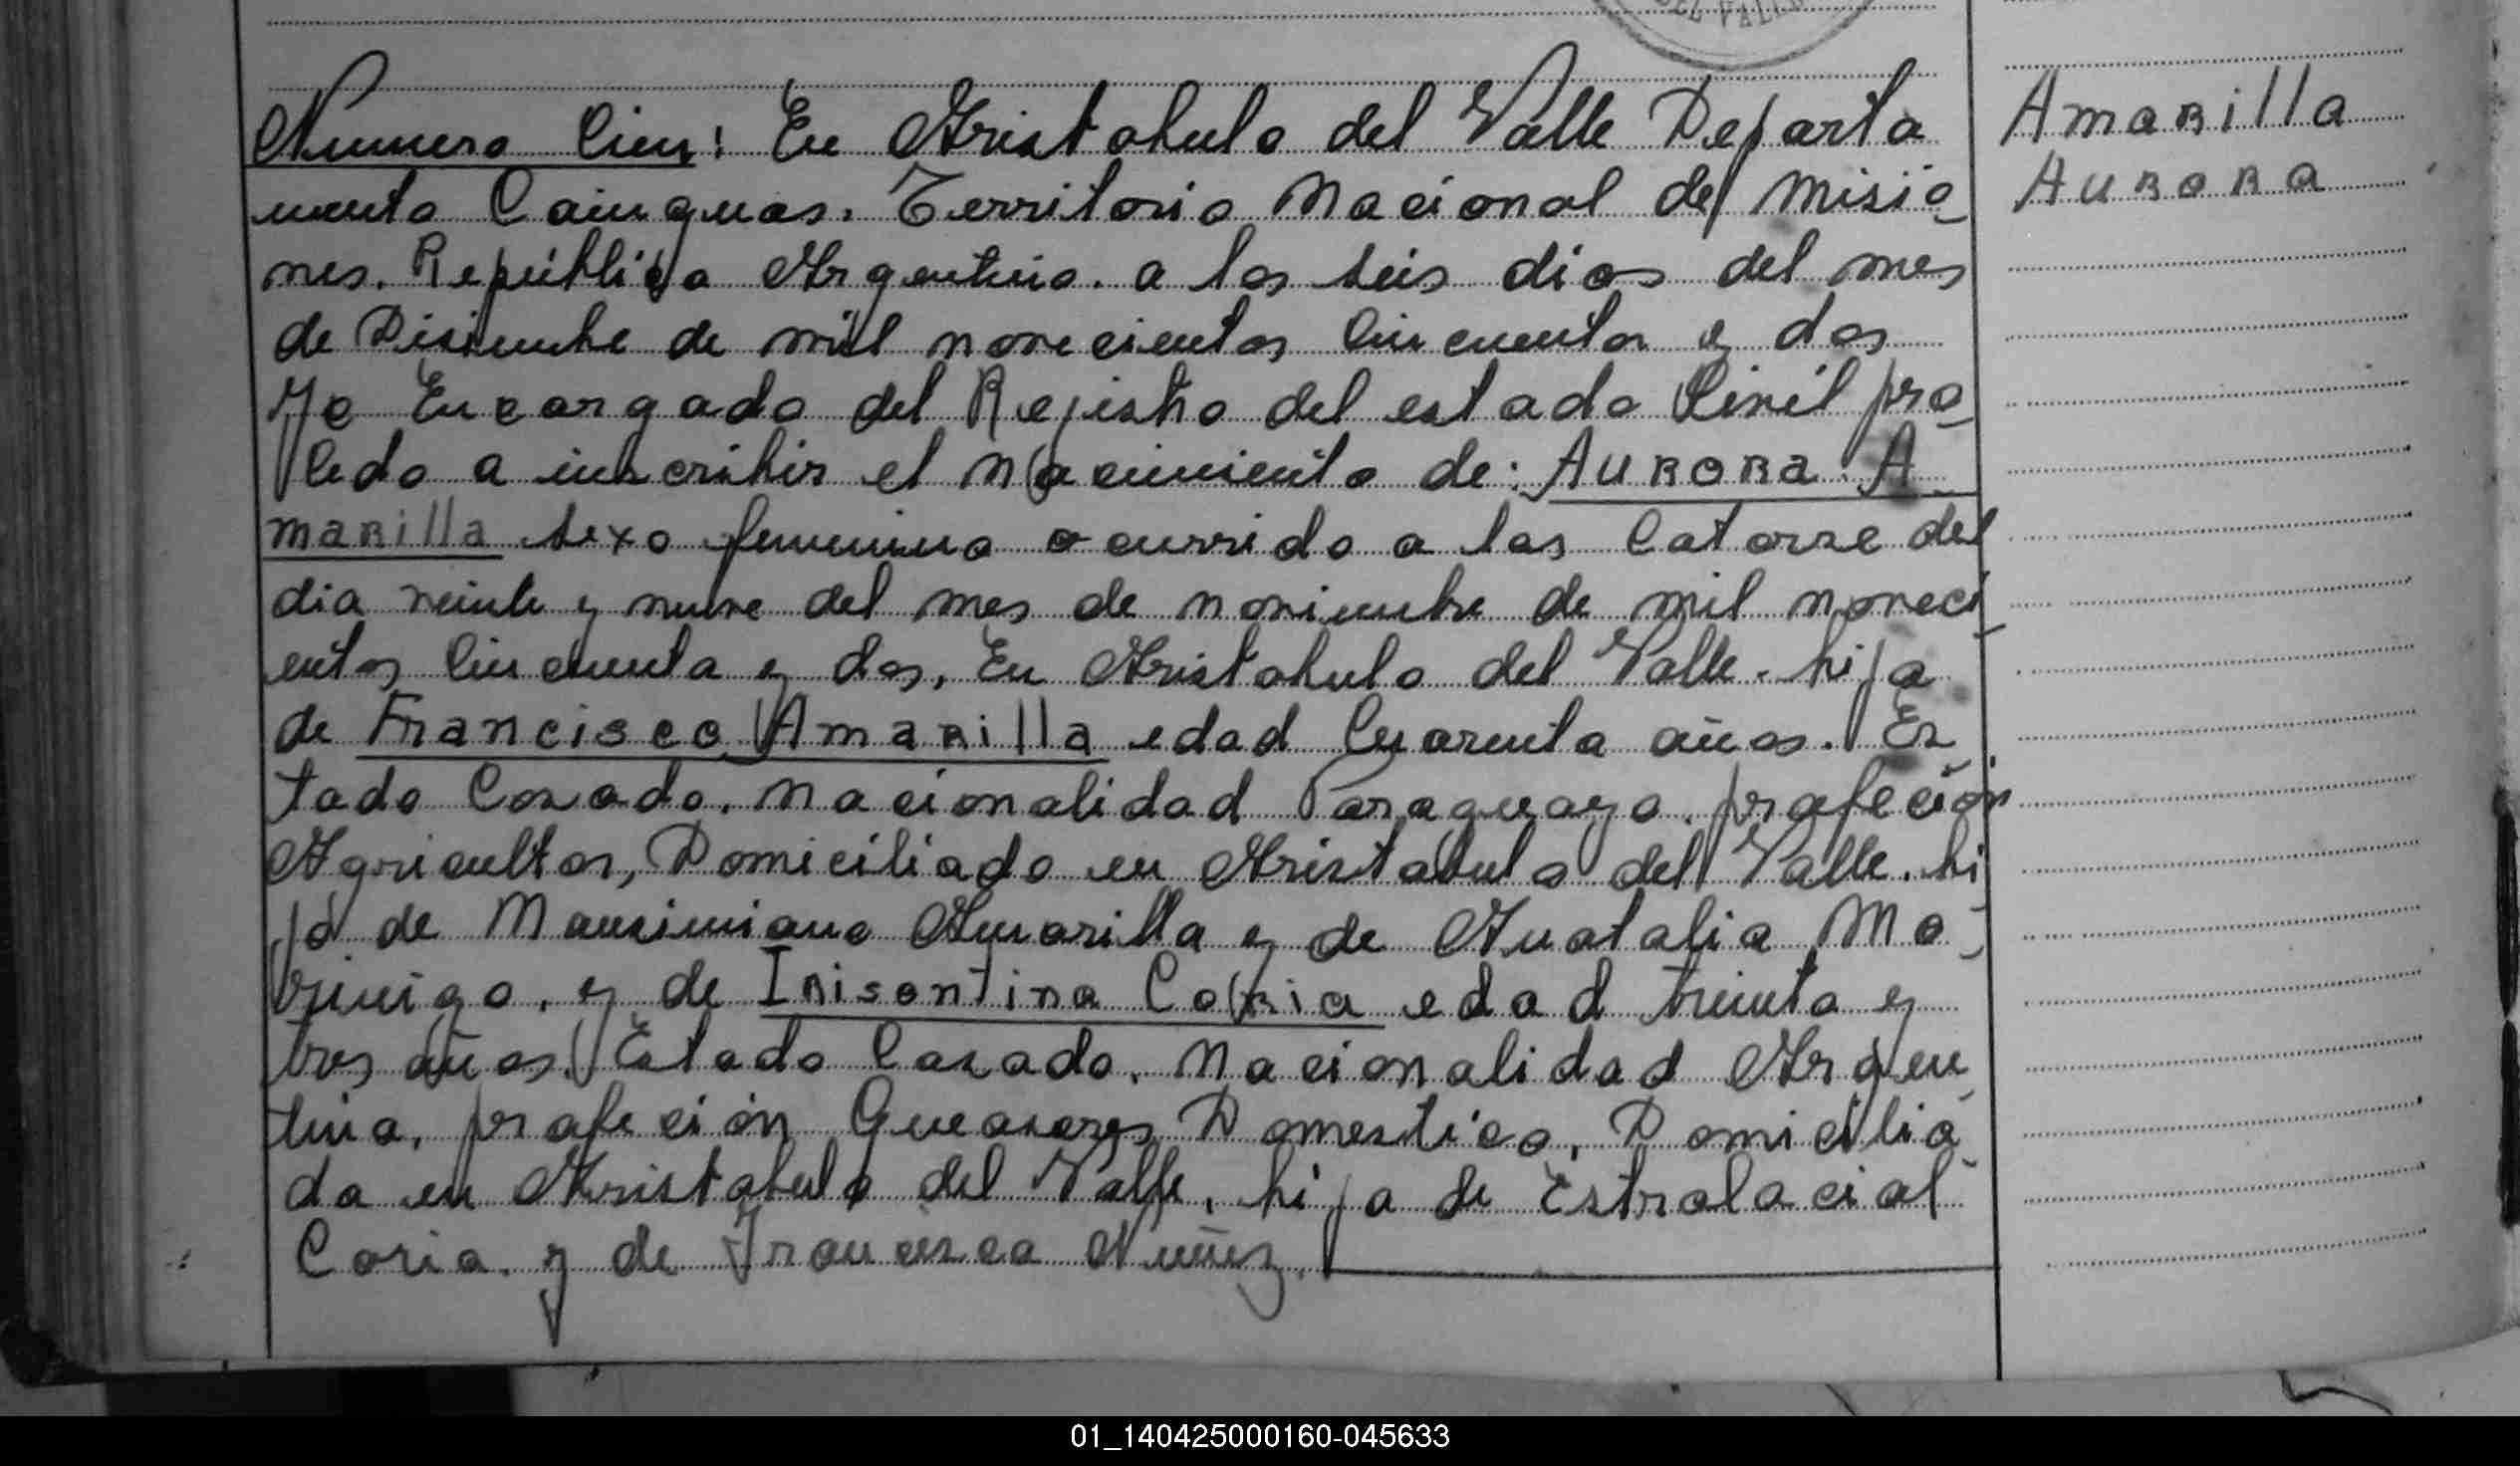 DEL VALLE
Numero Cien: En Aristobulo del Valle Departa
mento Cainguas. Territorio Nacional de Misio_
nes. República Argentina. a los seis dias del mes
de Disiembre de mil novecientos Cincuenta y dos
Yo Encargado del Rejistro del estado Civil pro_
cedo a inscribir el Nacimiento de: AURORA. A_
marilla sexo femenino ocurrido a las Catorse del
dia veinte y nueve del mes de noviembre de mil noveci_
entos Cincuenta y dos, En Aristobulo del Valle. hija
de Francisco Amarilla edad Cuarenta años. Es_
tado Casado. Nacionalidad Paraguayo. profeción
Agricultor, Domiciliado en Aristobulo del Valle. hi_
jo de Mausimiano Amarilla y de Anatalia Mo_
rinigo. y de Irisontina Coria edad treinta y
tres años. Estado Casado. Nacionalidad Argen_
tina. profeción Domestico, Domicilia_
da en Aristobulo del Valle, hija de Estralacial
Coria. y de Francisca Nuñez.
Amarilla
Aurora
01_140425000160-045633